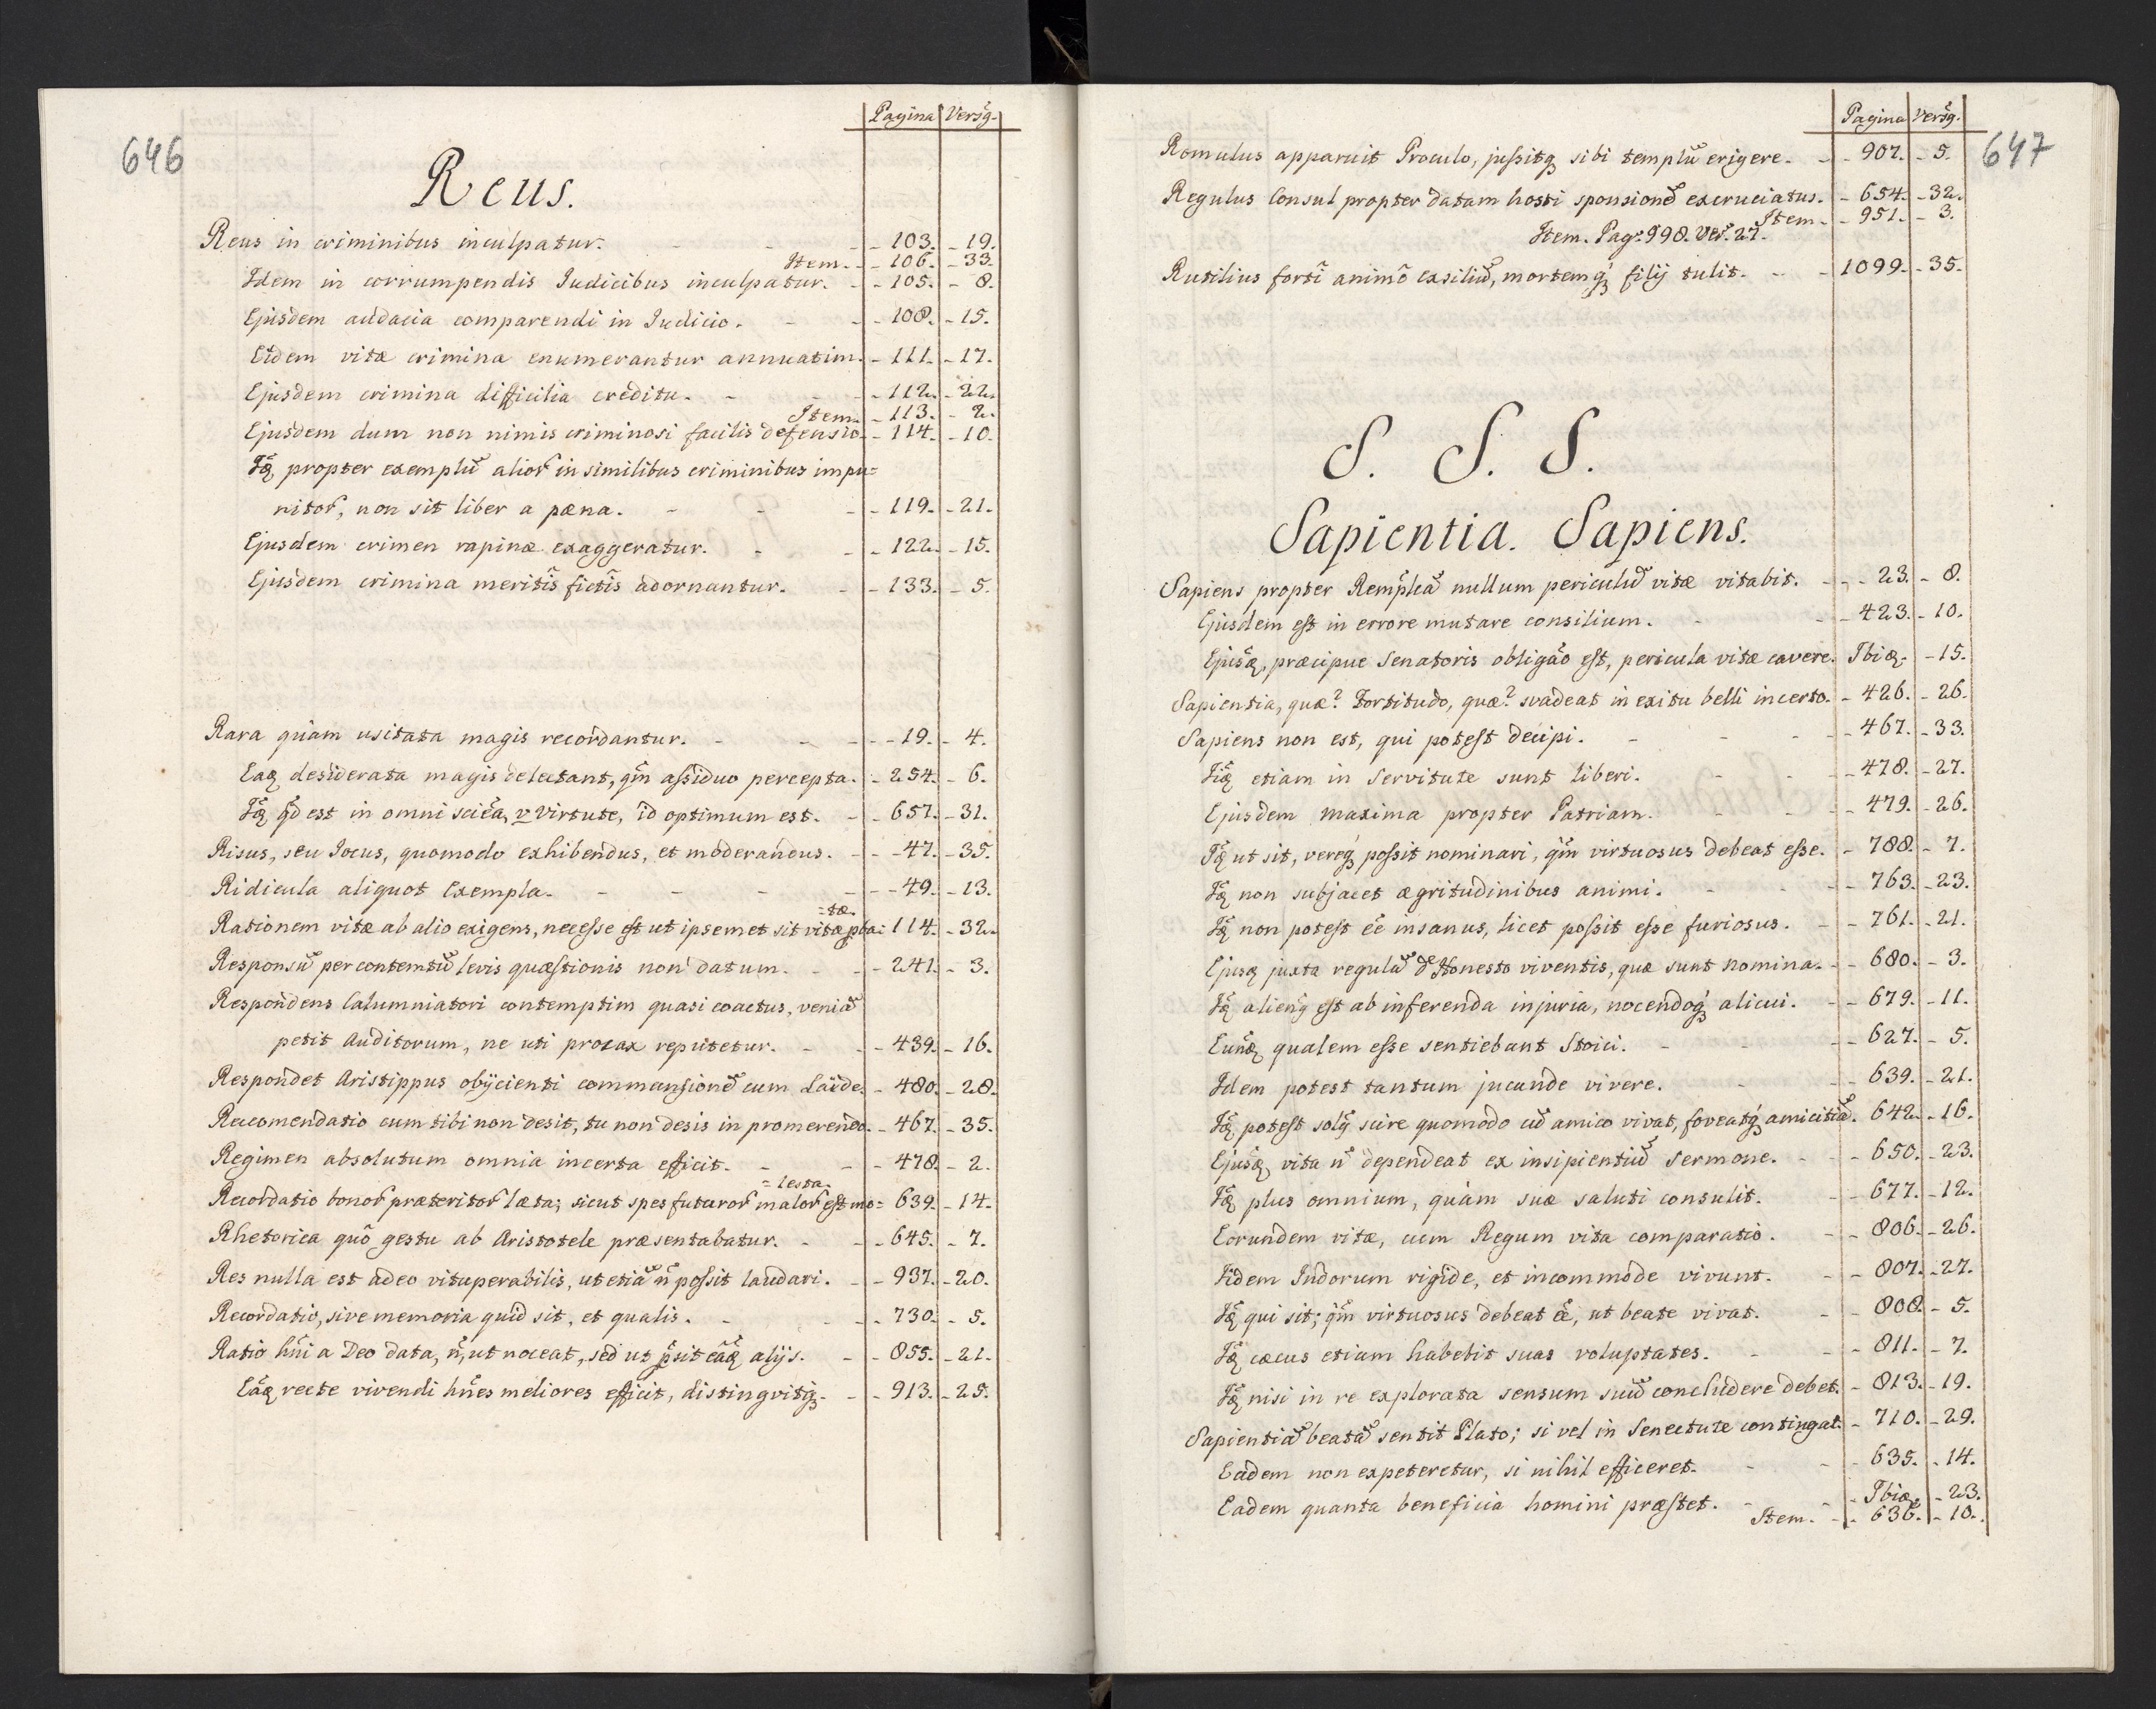 646
Pagina Versꝯ.
Reus.
Reus in criminibus inculpatur. - - - 103. - 19.
Item. - - 106. - 33.
Idem in corrumpendis Judicibus inculpatur. - - 105. - 8.
Ejusdem audacia comparendi in Judicio. - - - 108. - 15.
Eidem vitæ crimina enumerantur annuatim. - 111. - 17.
Ejusdem crimina difficilia creditu. - - - 112. - 22.
Item. - 113. - 2.
Ejusdem dum non nimis criminosi facilis defensio. - 114. - 10.
Idꝫ propter exemplũ alioꝝ in similibus criminibus impu=
nitoꝝ, non sit liber a pæna. - - - 119. - 21.
Ejusdem crimen rapinæ exaggeratur. - - - 122. - 15.
Ejusdem crimina meritis fictis adornantur. - - 133. - 5.
Rara quàm usitata magis recordantur. - - - 19. - 4.
Eaꝫ desiderata magis delectant, qm̃ aſsiduo percepta. - 254. - 6.
Idꝫ qd est in omni sciẽa, v Virtute, id optimum est. - - 657. - 31.
Risus, seu Jocus, quomodo exhibendus, et moderandus. - - 47. - 35.
Ridicula aliquot Exempla. - - - - 49. - 13.
=tæ.
Rationem vitæ ab alio exigens, neceſse eſt ut ipsemet sit vitæ pba= 114. - 32.
Responsũ per contemtũ levis quæſtionis non datum. - - 241. - 3.
Respondens Calumniatori contemptim quasi coactus, veniã
petit Auditorum, ne uti procax reputetur. - - 439. - 16.
Respondet Aristippus objicienti commansionẽ cum Laide. - 480. - 28.
Reccomendatio cum tibi non desit, tu non desis in promerendo. - 467. - 35.
Regimen absolutum omnia incerta efficit. - - - 478. - 2.
=lesta.
Recordatio bonoꝝ præteritoꝝ læta; sicut spes futuroꝝ maloꝝ eſt mo= 639. - 14.
Rhetorica quõ gestu ab Aristotele præsentabatur. - - 645. - 7.
Res nulla est adeo vituperabilis, ut etiã ñ poſsit laudari. - - 937. - 20.
Recordatio, sive memoria quid sit, et qualis. - - - 730. - 5.
Ratio hñi a Deo data, ñ, ut noceat, sed ut psit eãꝫ alijs. - - 855. - 21.
Eãꝫ recte vivendi hñes meliores efficit, distingvitqꝫ. - - 913. - 25.
647
Pagina Versꝯ.
Romulus apparuit Proculo, juſsitqꝫ sibi templũ erigere. - - 907. - 5.
Regulus Consul propter datam hosti sponsionẽ excruciatus. - 654. - 32.
Item - - 951. - 3.
Item. Pag. 998. Ver. 27.
Rutilius forti animo exsiliũ, mortemqꝫ filij tulit. - - 1099. - 35.
S. S. S.
Sapientia. Sapiens.
Sapiens propter Remplcã nullum periculũ vitæ vitabit. - - - 23. - 8.
Ejusdem eſt in errore mutare consilium. - - - 423. - 10.
Ejusdꝫ, præcipue Senatoris obligão eſt, pericula vitæ cavere. Ibidꝫ. - 15.
Sapientia, quæ? Fortitudo, quæ? svadeat in exitu belli incerto. - 426. - 26.
Sapiens non est, qui poteſt decipi. - - - - 467. - 33.
Iidꝫ etiam in Servitute sunt liberi. - - - 478. - 27.
Ejusdem maxima propter Patriam. - - - 479. - 26.
Idꝫ ut sit, vereqꝫ poſsit nominari, qm̃ virtuosus debeat eſse. - 788. - 7.
Idꝫ non subjacet ægritudinibus animi. - - - 763. - 23.
Idꝫ non poteſt ẽe insanus, licet poſsit eſse furiosus. - - 761. - 21.
Ejusdꝫ juxta regulã de Honesto viventis, quæ sunt nomina. - - 680. - 3.
Idꝫ alienꝯ eſt ab inferenda injuria, nocendoqꝫ alicui. - - 679. - 11.
Eundꝫ qualem eſse sentiebant Stoici. - - - 627. - 5.
Idem potest tantum jucunde vivere. - - - 639. - 21.
Idꝫ poteſt solꝯ scire quomodo cũ amico vivat, foveatqꝫ amicitiã. 642. - 16.
Ejusdꝫ vita ñ dependeat ex insipientiũ Sermone. - - 650. - 23.
Idꝫ plus omnium, quàm suæ saluti consulit. - - 677. - 12.
Eorundem vitæ, cum Regum vita comparatio. - - 806. - 26.
Iidem Indorum rigide, et incommode vivunt. - - 807. - 27.
Idꝫ qui sit; qm̃ virtuosus debeat ẽe, ut beate vivat. - - 808. - 5.
Idꝫ cæcus etiam habebit suas voluptates. - - - 811. - 7.
Idꝫ nisi in re explorata sensum suũ concludere debet. - 813. - 19.
Sapientiã beatã sentit Plato; si vel in Senectute contingat. - 710. - 29.
Eadem non expeteretur, si nihil efficeret. - - - 635. - 14.
Eadem quanta beneficia homini præſtet. - - - Ibidꝫ - 23.
Item. - - 636. - 10.